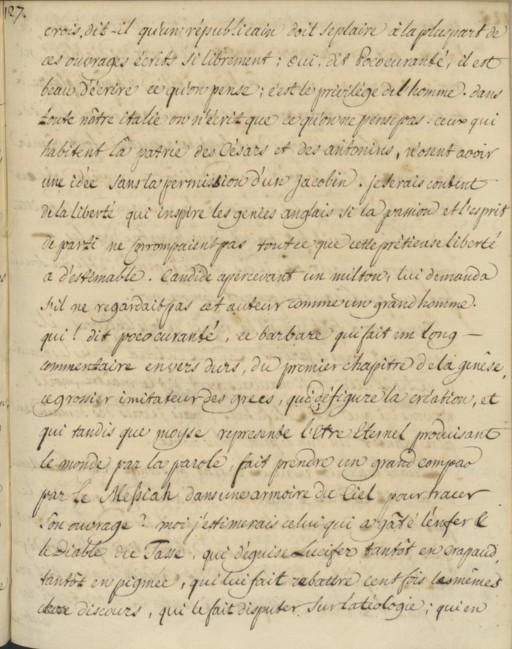 127.
crois, dit-il qu'un républicain doit se plaire à la plus part de
ces ouvrages écrits si librement : oui, dit Pococuranté, il est
beau d'écrire ce qu'on pense ; c'est le privilège de l'homme. dans
toute nôtre italie on n'écrit que ce qu'on ne pense pas. ceux qui
habitent la patrie des Césars et des antonins, n'osent avoir
une idée sans la permission d'un jacobin. je serais content
de la liberté qui inspire les genies anglais si la passion et l'esprit
de parti ne corrompaient pas tout ce que cette prétieuse liberté
a d'estimable. Candide apercevant un milton, lui demanda
s'il ne regardait pas cet auteur comme un grand homme.
qui ! dit pococuranté, ce barbare qui fait un long
commentaire en vers durs, du premier chapitre de la genêse,
ce grosier imitateur des grecs, qui défigure la création, et
qui tandis que moyse represente l'Etre Eternel produisant
le monde par la parole, fait prendre un grand compas
par le Messiah dans une armoire du Ciel pour tracer
son ouvrage ? moi j'estimerais celui qui a gâté l'enfer &
le Diable du Tasse, qui déguise Lucifer tantôt en crapaud,
tantôt en pigmée, qui lui fait rebattre cent fois les mêmes
discours, qui le fait disputer sur la téologie ; qui en